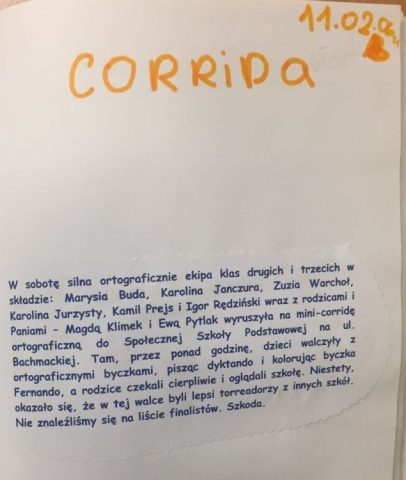 11.02.
CORRiDa
W sobotę silna ortograficznie ekipa klas drugich i trzecich w
składzie: Marysia Buda, Karolina Janczura, Zuzia Warchoł,
Karolina Jurzysty, Kamil Prejs i Igor Rędziński wraz z rodzicami i
Paniami – Magdą Klimek i Ewą Pytlak wyruszyła na mini-corridę
ortograficzną do Społecznej Szkoły Podstawowej na ul.
Bachmackiej. Tam, przez ponad godzinę, dzieci walczyły z
ortograficznymi byczkami, pisząc dyktando i kolorując byczka
Fernando, a rodzice czekali cierpliwie i oglądali szkołę. Niestety,
okazało się, że w tej walce byli lepsi torreadorzy z innych szkół.
Nie znaleźliśmy się na liście finalistów. Szkoda.